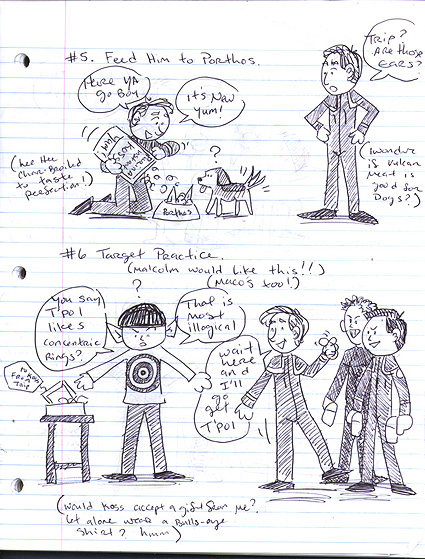 #5. Feed Him to Porthos.
Here Ya
Go Boy
It's New
Yum!
Trip?
Are those
EARS?
(hee hee
Char-Broiled
to taste
perfection!)
Yum!
Koss
Porthos
?
(wonder
is vulcan
meat is
good for
Dogs?)
#6 Target Practice.
(Malcolm would like this!!)
(Maco's too!)
?
You say
T'pol
likes
concentric
Rings?
That is
most
illogical
wait
here
and
I'll
go
get
T'pol
To Koss
From
Trip
(would Koss accept a gift from me?
Let alone wear a Bulls-eye
Shirt? hmm)